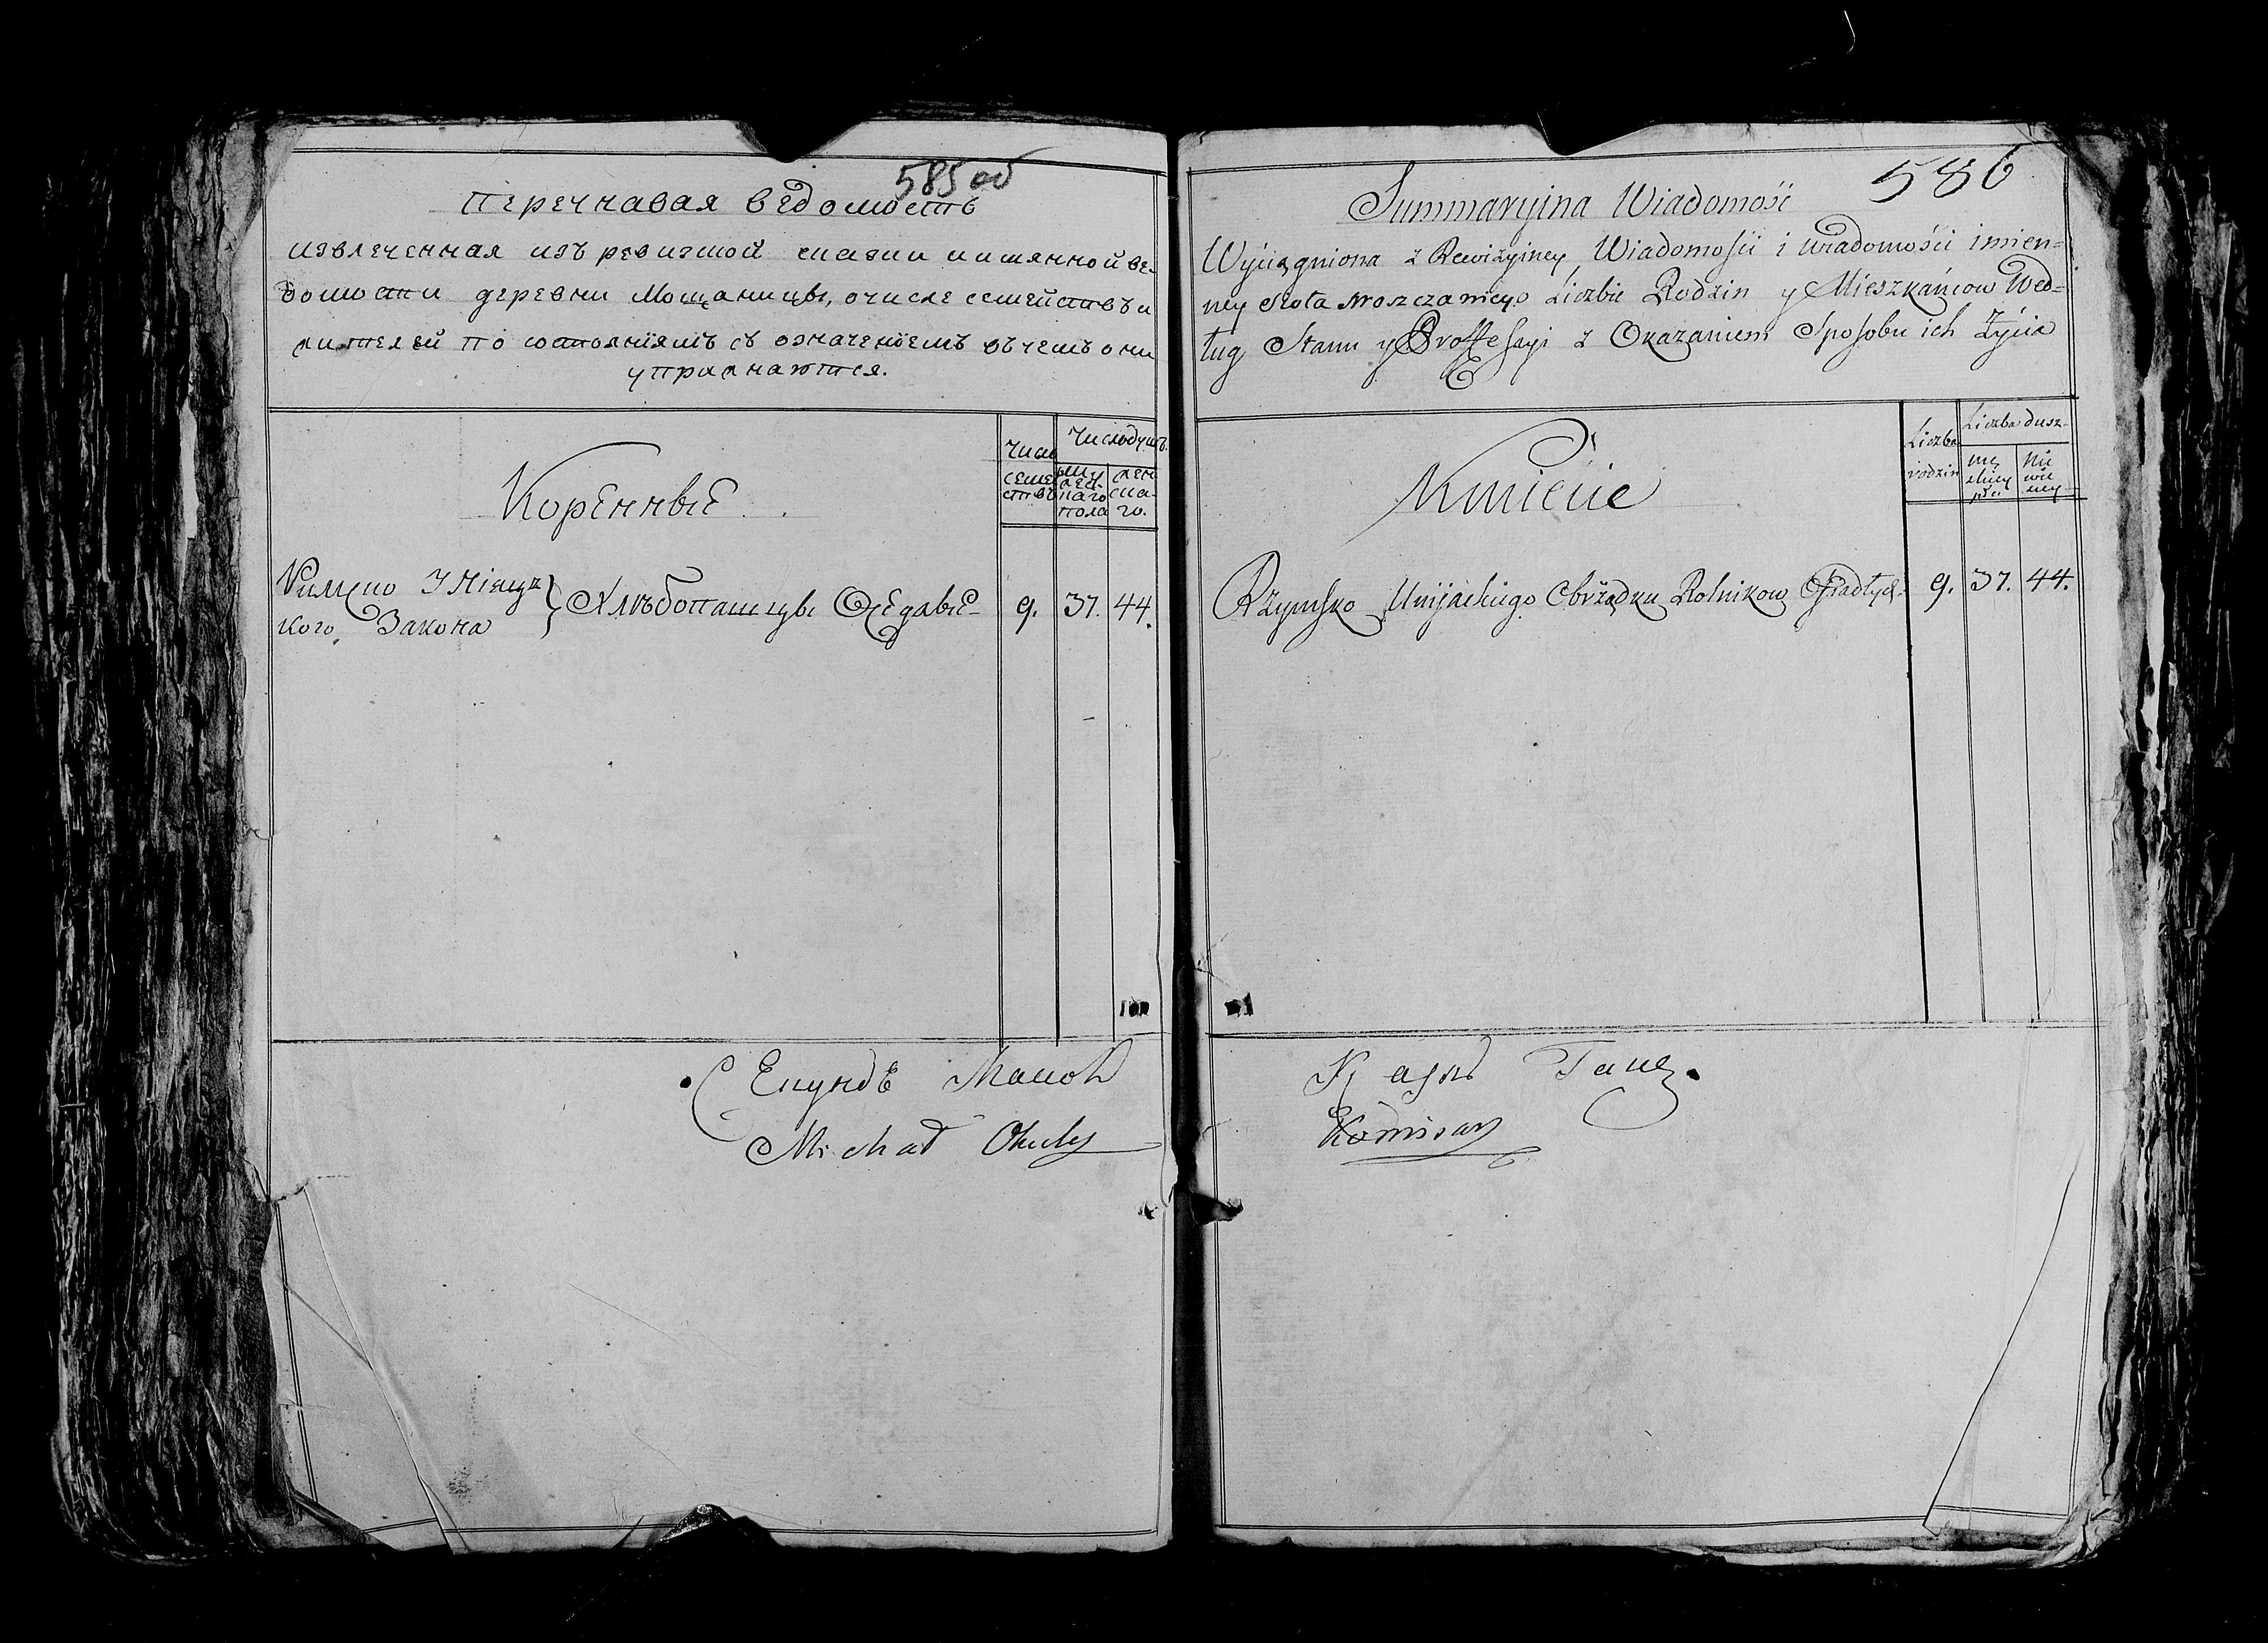 585 об
Перечнавая ведомость
извлеченная изъ ревизкой сказки и имянной ве-
домости деревни Мощаницы, о числе семействъ и
жителей по состояніямъ съ означеніемъ въ чемъ они
упражнаются.
Коренные
Число
семе
ствъ
Число душъ.
му
жес-
каго
пола
жен
ска-
го.
Римско Уніяцъ
кого Закона } Хлѣбопашцы Оседлые 9. 37. 44.
Michał
586
Summaryina Wiadomość
Wyciągniona z Rewizyiney Wiadomości i wiadomości imien=
ney Sioła Moszczanicy o Liczbie Rodzin y Mieszkańcow Wed=
ług Stanu y Proffessyi z Okazaniem Sposobu ich Życia
Kmiecie
Liczba
rodzin
Liczba dusz
mę
płci
Nie
wie
Rzymsko Unijackiego Obrządku Rolnikow Osiadłych 9. 37. 44.
Komisarz